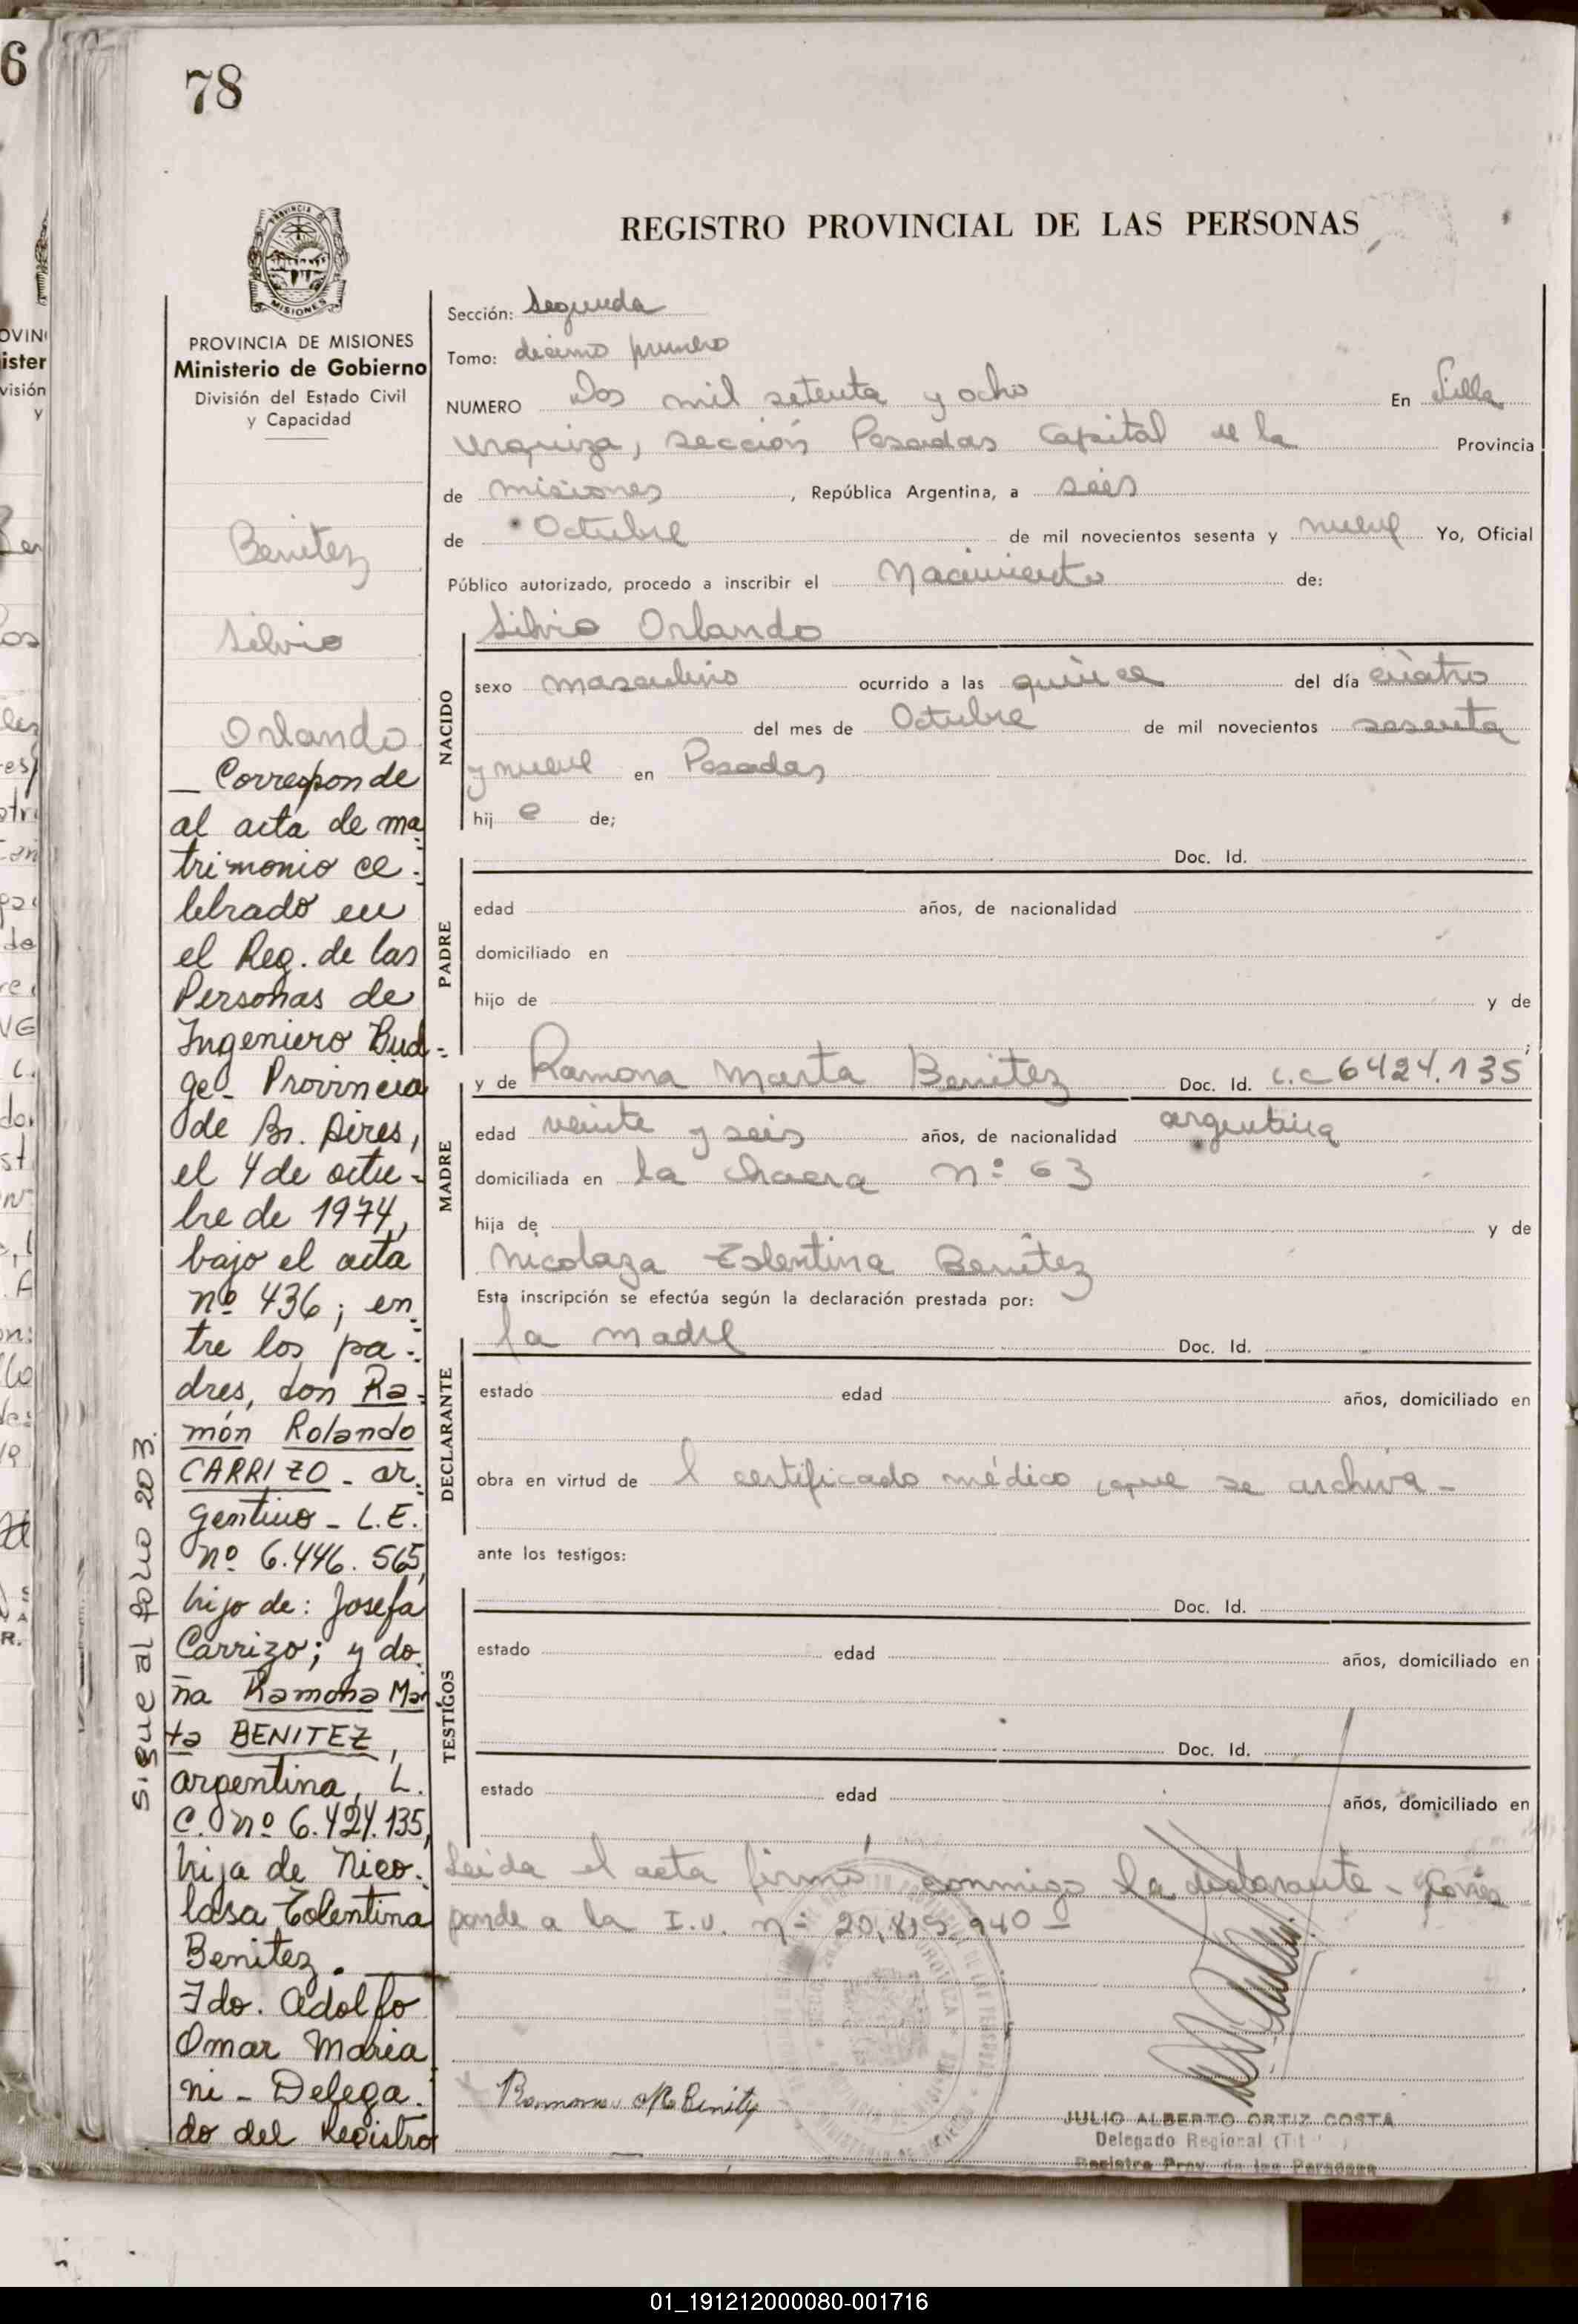 78
REGISTRO PROVINCIAL DE LAS PERSONAS
PROVINCIA DE MISIONES
Ministerio de Gobierno
División del Estado Civil
y Capacidad
Benitez
Silvio
Orlando
_ Corresponde
al acta de ma
trimonio ce-
lebrado en
el Reg. de las
Personas de
Ingeniero Bud-
ge - Provincia
de Bs. Aires,
el 4 de octu-
bre de 1974,
bajo el acta
nº 436; en
tre los pa-
dres, don Ra-
món Rolando
CARRIZO - ar
gentino - L.E.
nº 6.446.565,
hijo de: Josefa
Carrizo; y do
ña Ramona Mar
ta BENITEZ,
argentina, L.
C. nº 6.424.135,
hija de Nico-
lasa Tolentina
Benitez.
Fdo. Adolfo
Omar Maria
ni - Delega-
do del Registro
sigue al folio 203.
Sección: Segunda
Tomo: décimo primero
NUMERO Dos mil setenta y ocho En Villa
Urquiza, sección Posadas Capital de la Provincia
de misiones, República Argentina, a seis
de Octubre de mil novecientos sesenta y nueve Yo, Oficial
Público autorizado, procedo a inscribir el Nacimiento de:
Silvio Orlando
NACIDO
sexo masculino ocurrido a las quince del día cuatro
del mes de Octubre de mil novecientos sesenta
y nueve en Posadas
hij e de;
PADRE
Doc. Id.
edad años, de nacionalidad
domiciliado en
hijo de y de
MADRE
y de Ramona Marta Benitez Doc. Id. L.C 6424.135
edad veinte y seis años, de nacionalidad argentina
domiciliada en la chacra nº 63
hija de y de
Nicolaza Tolentina Benitez
Esta inscripción se efectúa según la declaración prestada por:
DECLARANTE
la madre Doc. Id.
estado edad años, domiciliado en
obra en virtud de l certificado médico que se archiva -
ante los testigos:
TESTIGOS
Doc. Id.
estado edad años, domiciliado en
Doc. Id.
estado edad años, domiciliado en
Leída el acta firmó conmigo la declarante - Corres
ponde a la I.U. nº 20,819,940 -
Ramona M Benitez
JULIO ALBERTO ORTIZ COSTA
Delegado Regional
Registro Prov. de las Personas
01_191212000080-001716